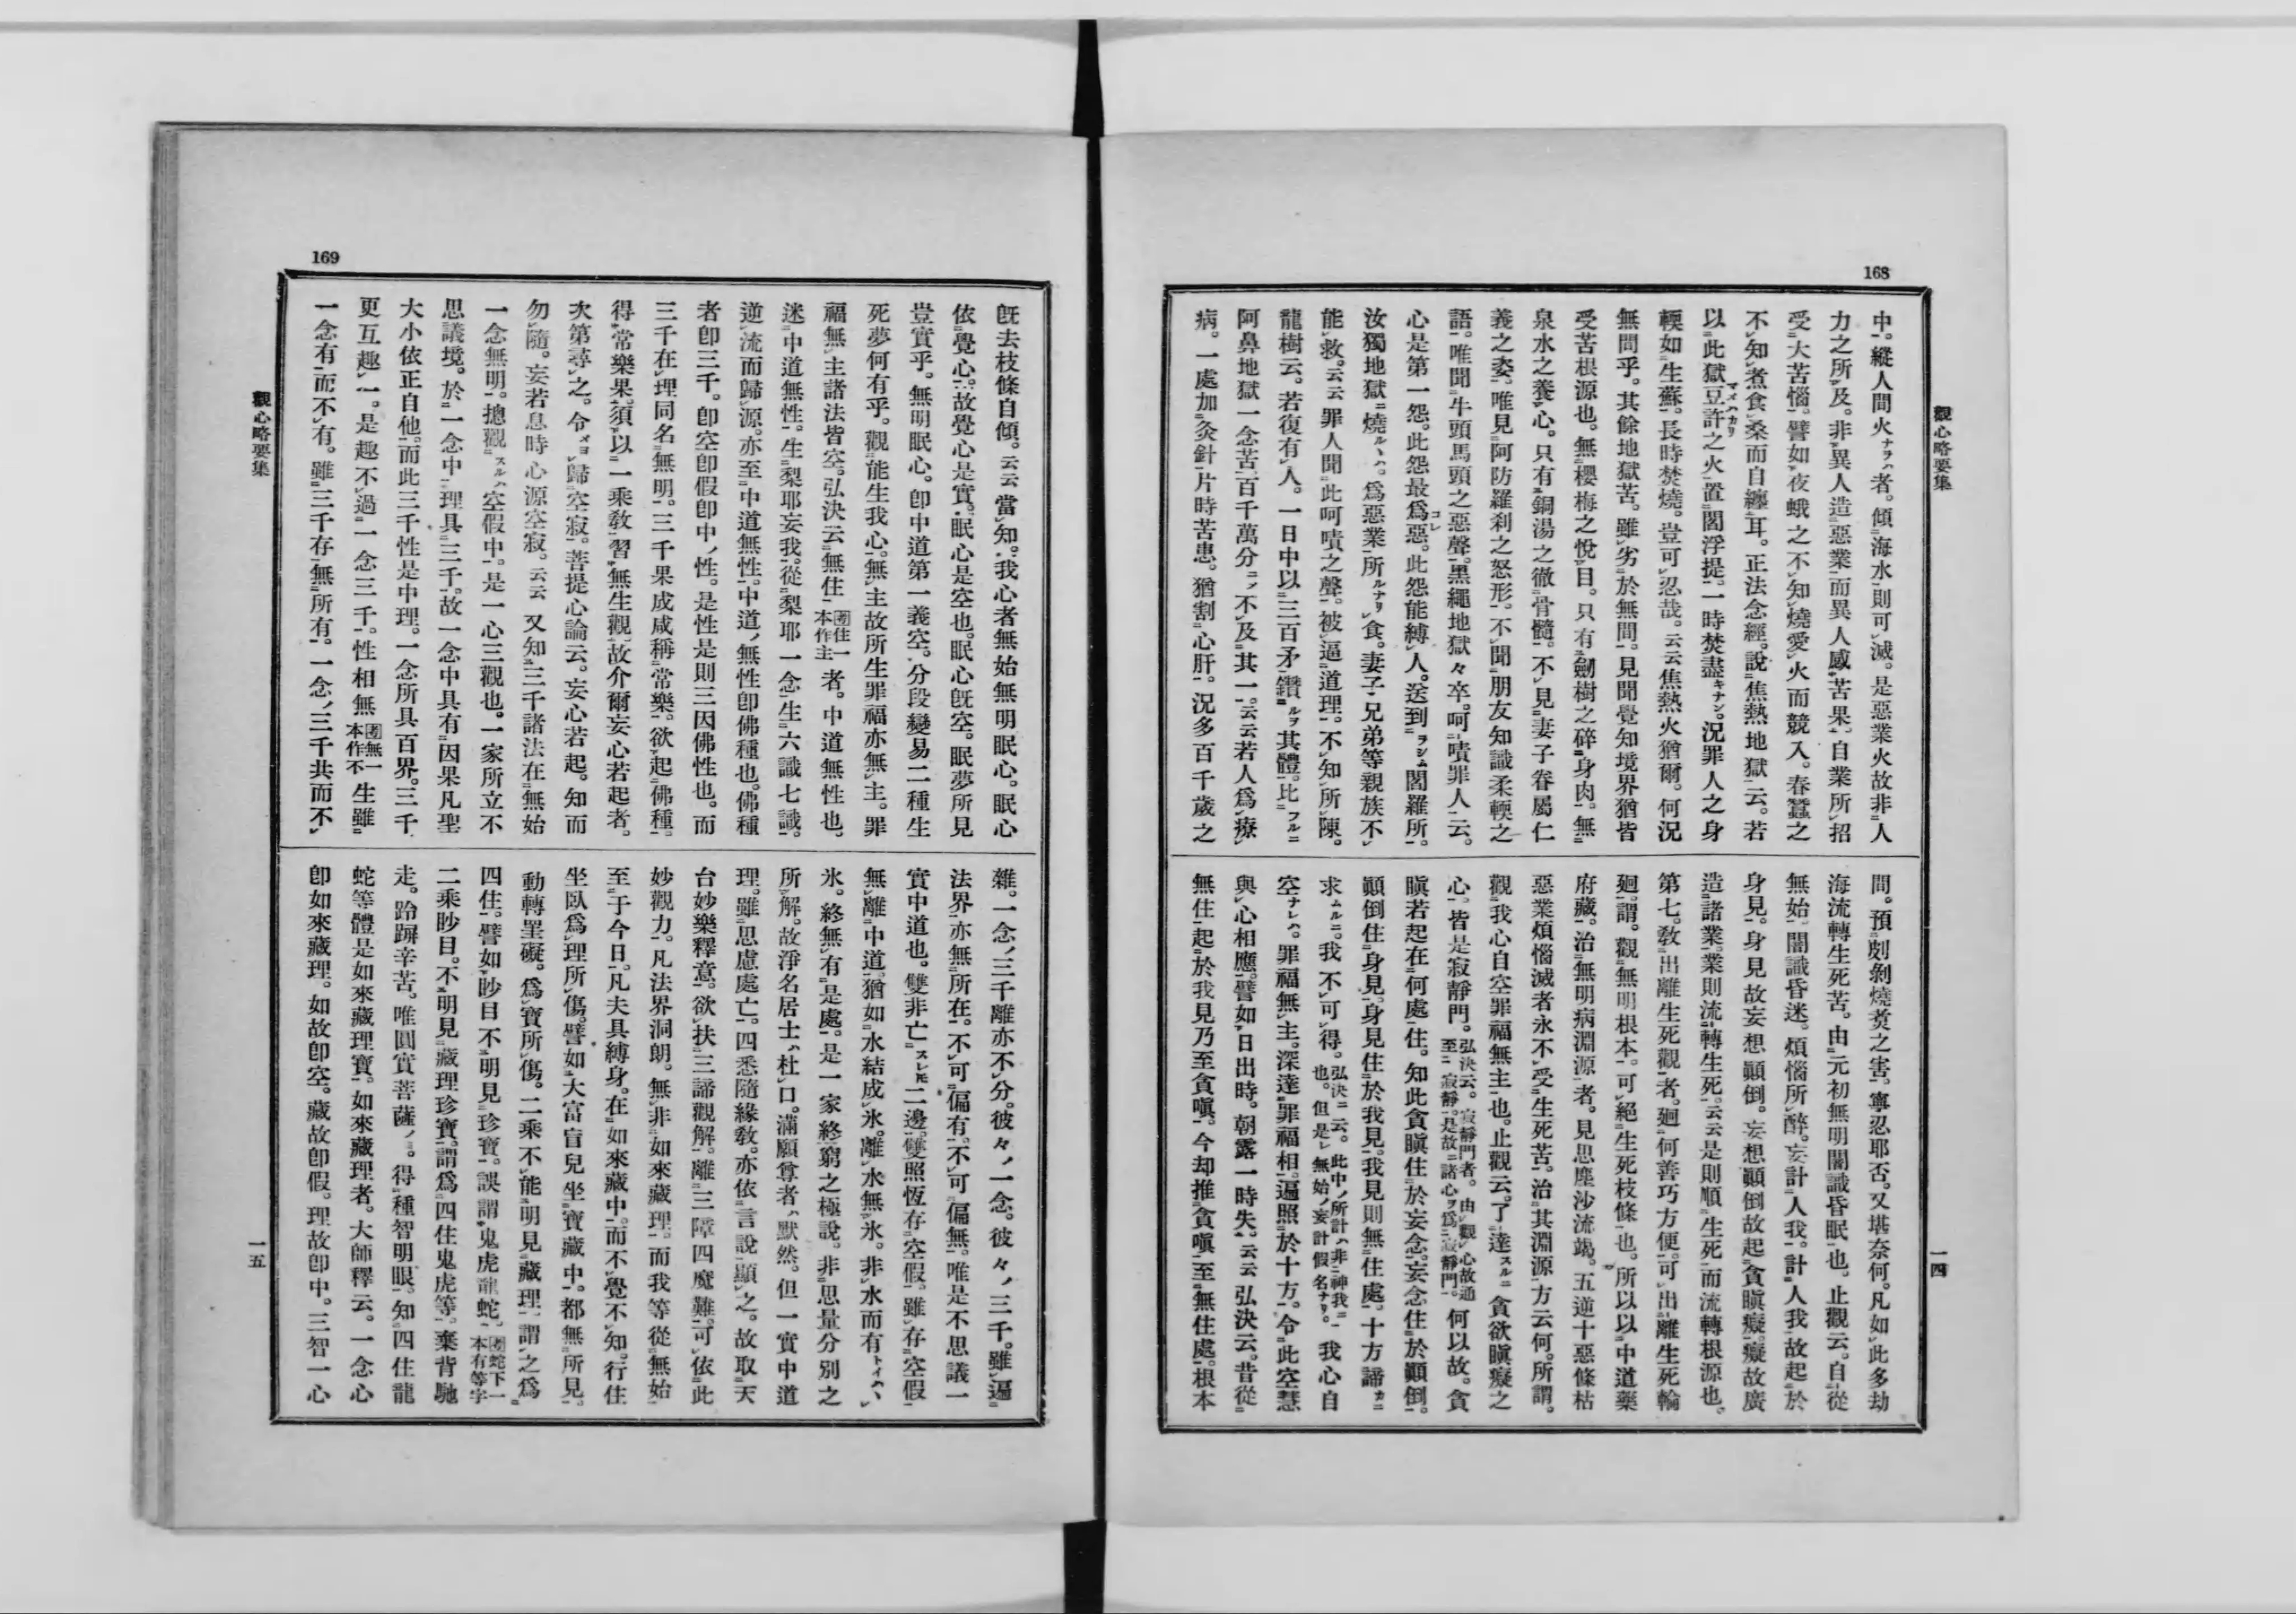 168
觀心略要集
一四
中。縱人間火者。傾海水則可滅。是惡業火故非人
力之所及。非異人造惡業而異人感苦果。自業所招
受大苦惱。譬如夜蛾之不知燒愛火而競入。春蠶之
不知煮食桑而自纏耳。正法念經。說焦熱地獄云。若
以此獄豆許之火置閻浮提。一時焚盡。況罪人之身
輭如生蘇。長時焚燒。豈可忍哉。云云焦熱火猶爾。何況
無間乎。其餘地獄苦。雖劣於無間。見聞覺知境界猶皆
受苦根源也。無櫻梅之悅目。只有劒樹之碎身肉。無
泉水之養心。只有銅湯之徹骨髓。不見妻子眷屬仁
義之姿。唯見阿防羅刹之怒形。不聞朋友知識柔輭之
語。唯聞牛頭馬頭之惡聲。黑繩地獄々卒。呵嘖罪人云。
心是第一怨。此怨最爲惡。此怨能縛人。送到閻羅所。
汝獨地獄燒。爲惡業所食。妻子兄弟等親族不
能救。云云罪人聞此呵嘖之聲。被逼道理。不知所陳。
龍樹云。若復有人。一日中以三百矛鑽其體。比
阿鼻地獄一念苦百千萬分不及其一。云云若人爲療
病。一處加灸針片時苦患。猶割心肝。況多百千歲之
間。預剜剝燒煮之害。寧忍耶否。又堪奈何。凡如此多劫
海流轉生死苦。由元初無明闇識昏眠也。止觀云。自從
無始闇識昏迷。煩惱所醉。妄計人我。計人我故起於
身見。身見故妄想顚倒。妄想顚倒故起貪瞋癡。癡故廣
造諸業。業則流轉生死。云云是則順生死而流轉根源也。
第七。敎出離生死觀者。廻何善巧方便。可出離生死輪
廻。謂。觀無明根本。可絕生死枝條也。所以以中道藥
府藏。治無明病淵源者。見思塵沙流竭。五逆十惡條枯
惡業煩惱滅者永不受生死苦。治其淵源方云何。所謂。
觀我心自空罪福無主也。止觀云。了達貪欲瞋癡之
心。皆是寂靜門。弘決云。寂靜門者。由觀心故通至寂靜。是故諸心爲寂靜門。何以故。貪
瞋若起在何處住。知此貪瞋住於妄念。妄念住於顚倒。
顚倒住身見。身見住於我見。我見則無住處。十方諦
求。我不可得。弘決云。此中所計非神我也。但是無始妄計假名。我心自
空。罪福無主。深達罪福相。遍照於十方。令此空慧
與心相應。譬如日出時。朝露一時失。云云弘決云。昔從
無住起於我見乃至貪嗔。今却推貪嗔至無住處。根本
169
觀心略要集
一五
旣去枝條自傾。云云當知。我心者無始無明眠心。眠心
依覺心。故覺心是實。眠心是空也。眠心旣空。眠夢所見
豈實乎。無明眠心。卽中道第一義空。分段變易二種生
死夢何有乎。觀能生我心。無主故所生罪福亦無主。罪
福無主諸法皆空。弘決云無住團住一本作主者。中道無性也。
迷中道無性。生梨耶妄我。從梨耶一念生六識七識。
逆流而歸源。亦至中道無性。中道無性卽佛種也。佛種
者卽三千。卽空卽假卽中性。是性是則三因佛性也。而
三千在理同名無明。三千果成咸稱常樂。欲起佛種。
得常樂果。須以一乘敎習無生觀。故介爾妄心若起者。
次第尋之。令歸空寂。菩提心論云。妄心若起。知而
勿隨。妄若息時心源空寂。云云又知三千諸法在無始
一念無明。摠觀空假中。是一心三觀也。一家所立不
思議境。於一念中理具三千。故一念中具有因果凡聖
大小依正自他。而此三千性是中理。一念所具百界。三千
更互趣一。是趣不過一念三千。性相無團無一本作不生雖
一念有而不有。雖三千存無所有。一念三千共而不
雜。一念三千離亦不分。彼々一念。彼々三千。雖遍
法界亦無所在。不可偏有。不可偏無。唯是不思議一
實中道也。雙非亡二邊。雙照恆存空假。雖存空假
無離中道。猶如水結成氷。離水無氷。非水而有
氷。終無有是處。是一家終窮之極說。非思量分別之
所解。故淨名居士杜口。滿願尊者默然。但一實中道
理。雖思慮處亡。四悉隨緣敎。亦依言說顯之。故取天
台妙樂釋意。欲扶三諦觀解。離三障四魔難。可依此
妙觀力。凡法界洞朗。無非如來藏理。而我等從無始
至于今日。凡夫具縛身。在如來藏中。而不覺不知。行住
坐臥爲理所傷。譬如大富盲兒坐寶藏中。都無所見。
動轉罣礙。爲寶所傷。二乘不能明見藏理。謂之爲
四住。譬如眇目不明見珍寶。誤謂鬼虎龍蛇。團蛇下一本有等字
二乘眇目。不明見藏理珍寶。謂爲四住鬼虎等。棄背馳
走。跉跰辛苦。唯圓實菩薩。得種智明眼。知四住龍
蛇等體是如來藏理寶。如來藏理者。大師釋云。一念心
卽如來藏理。如故卽空。藏故卽假。理故卽中。三智一心